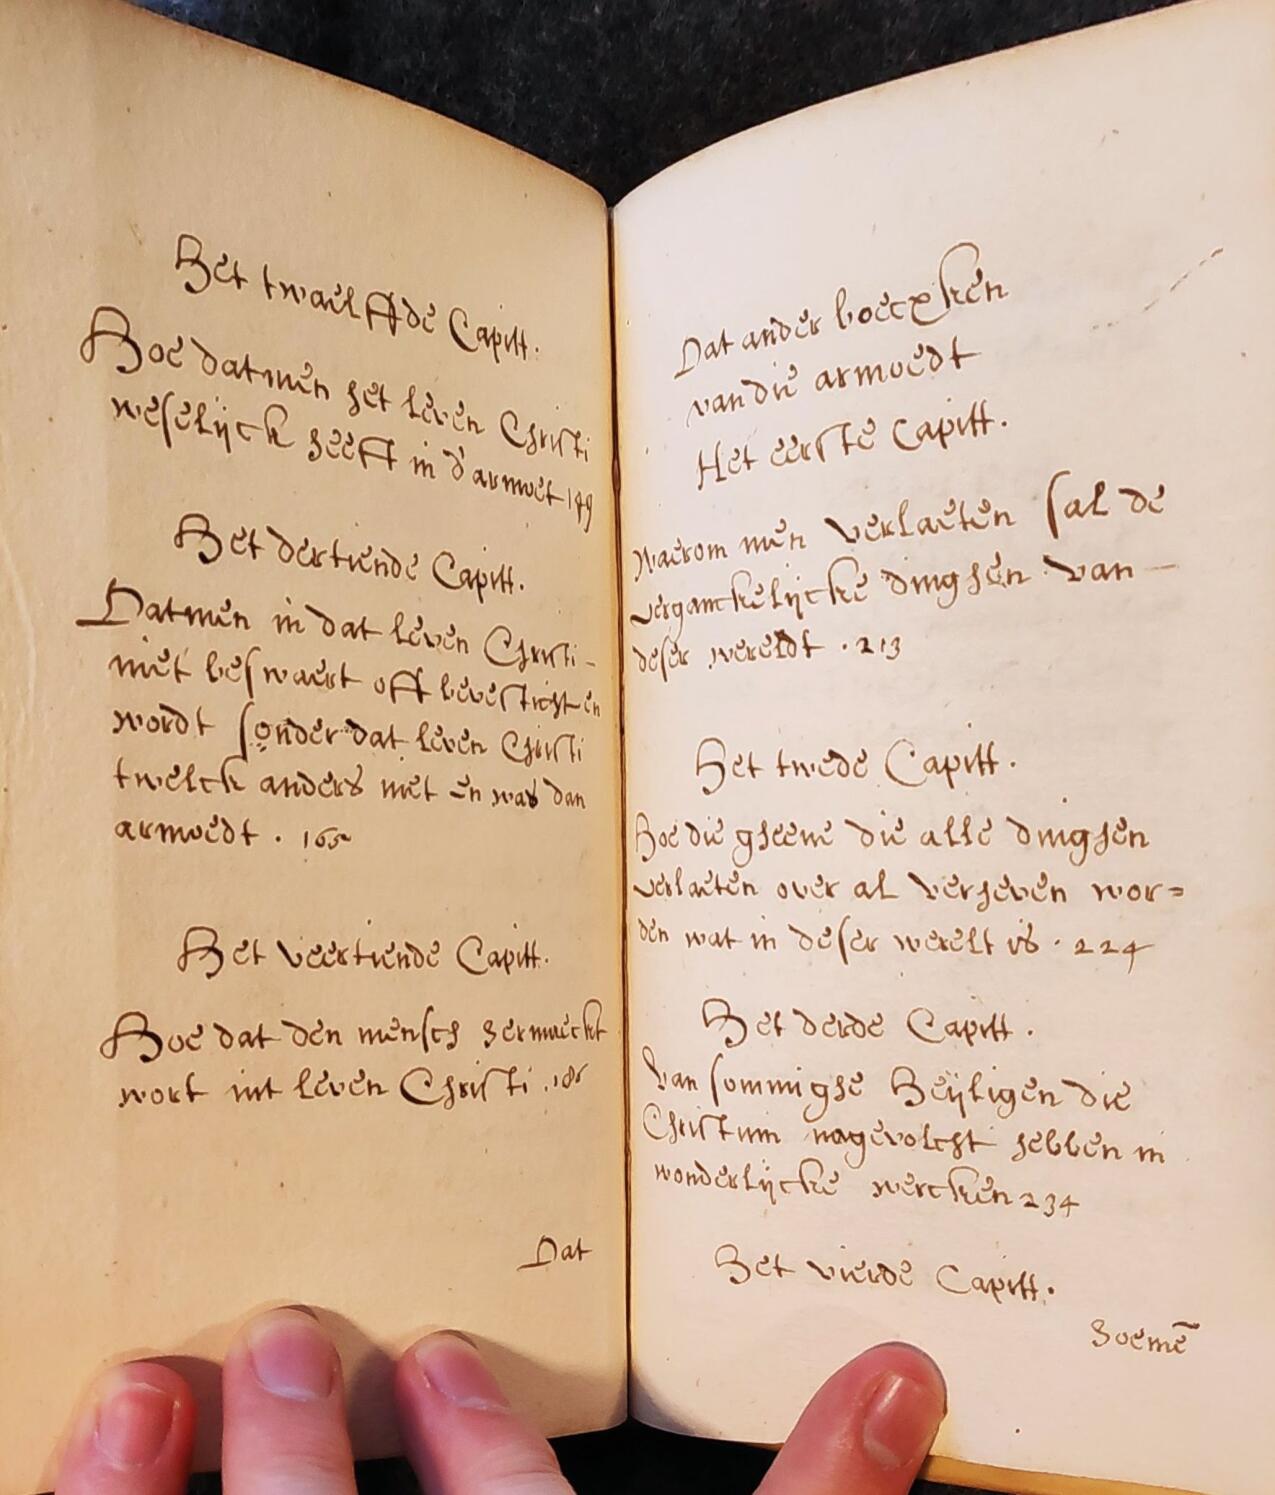 Het twaelffde Capitt.
Hoe datmen het leven Christi
weselijck heeft in d'armoet 149
Het dertiende Capitt.
Datmen in dat leven Christi -
niet beswaert off bevesticht en
wordt sonder dat leven Christi
twelck anders niet en was dan
armoedt . 165
Het veertiende Capitt.
Hoe dat den mensch hermaeckt
wort int leven Christi .
Dat
Dat ander boecxken
van die armoedt
Het eerste Capitt.
Waerom men verlaeten sal de
verganckelijcke dinghen van —
deser wereldt . 213
Het twede Capitt.
Hoe die gheene die alle dinghen
verlaeten over al verheven wor=
den wat in deser werelt is . 224
Het derde Capitt.
Van sommighe Heijligen die
Christum nagevolcht hebben in
wonderlijcke wercken 234
Het vierde Capitt.
Hoemē